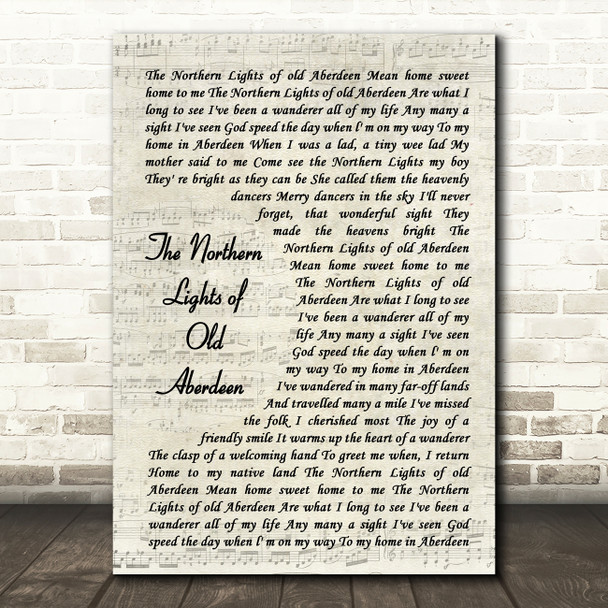 The Northern Lights of old Aberdeen Mean home sweet
home to me The Northern Lights of old Aberdeen Are what I
long to see I've been a wanderer all of my life Any many a
sight I've seen God speed the day when I'm on my way To my
home in Aberdeen When I was a lad, a tiny wee lad My
mother said to me Come see the Northern Lights my boy
They' re bright as they can be She called them the heavenly
dancers Merry dancers in the sky I'll never
forget, that wonderful sight They
made the heavens bright The
Northern Lights of old Aberdeen
Mean home sweet home to me
The Northern Lights of old
Aberdeen Are what I long to see
I've been a wanderer all of my
life Any many a sight I've seen
God speed the day when I'm on
my way To my home in Aberdeen
I've wandered in many far-off lands
And travelled many a mile I've missed
the folk I cherished most The joy of a
friendly smile It warms up the heart of a wanderer
The clasp of a welcoming hand To greet me when, I return
Home to my native land The Northern Lights of old
Aberdeen Mean home sweet home to me The Northern
Lights of old Aberdeen Are what I long to see I've been a
wanderer all of my life Any many a sight I've seen God
speed the day when I'm on my way To my home in Aberdeen
The Northern
Lights of
Old
Aberdeen